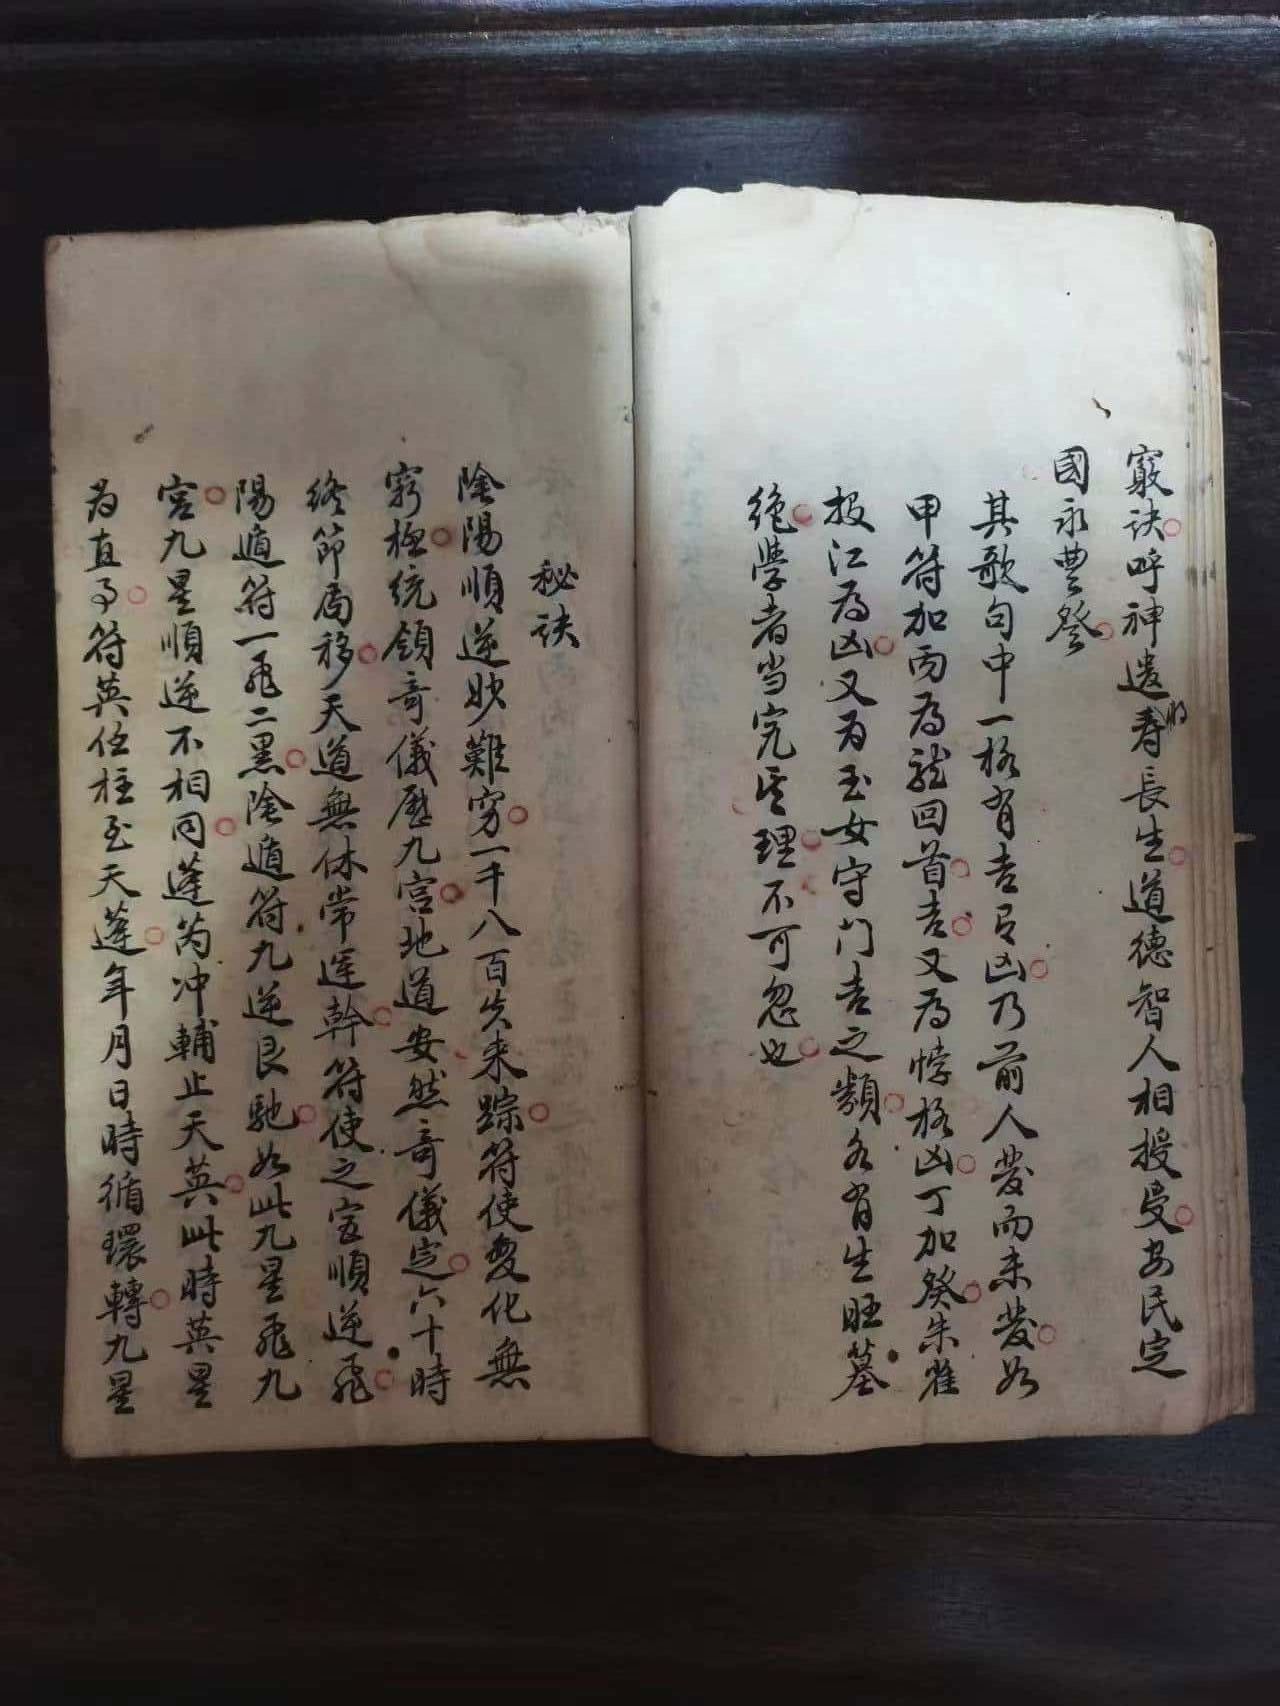 窮訣呼神遣将寿長生道德智人相授受安民定
國永豊登
其歌句中一格有吉有凶乃前人發而未發如
甲符加丙為龍回首吉又為悖格凶丁加癸朱雀
投江為凶又为玉女守门吉之類各有生旺墓
绝學者当究其理不可忽也
秘訣
陰陽順逆妙難穷一千八百失来踪符使変化無
窮極統領奇儀歷九宫地道安然奇儀定六十時
终節局移天道無休常運幹符使之宮順逆飛
陽遁符一飛二黑陰遁符九逆艮馳如此九星飛九
宫九星順逆不相同蓬芮冲輔止天英此時英星
为直事符英任柱至天蓬年月日時循環轉九星